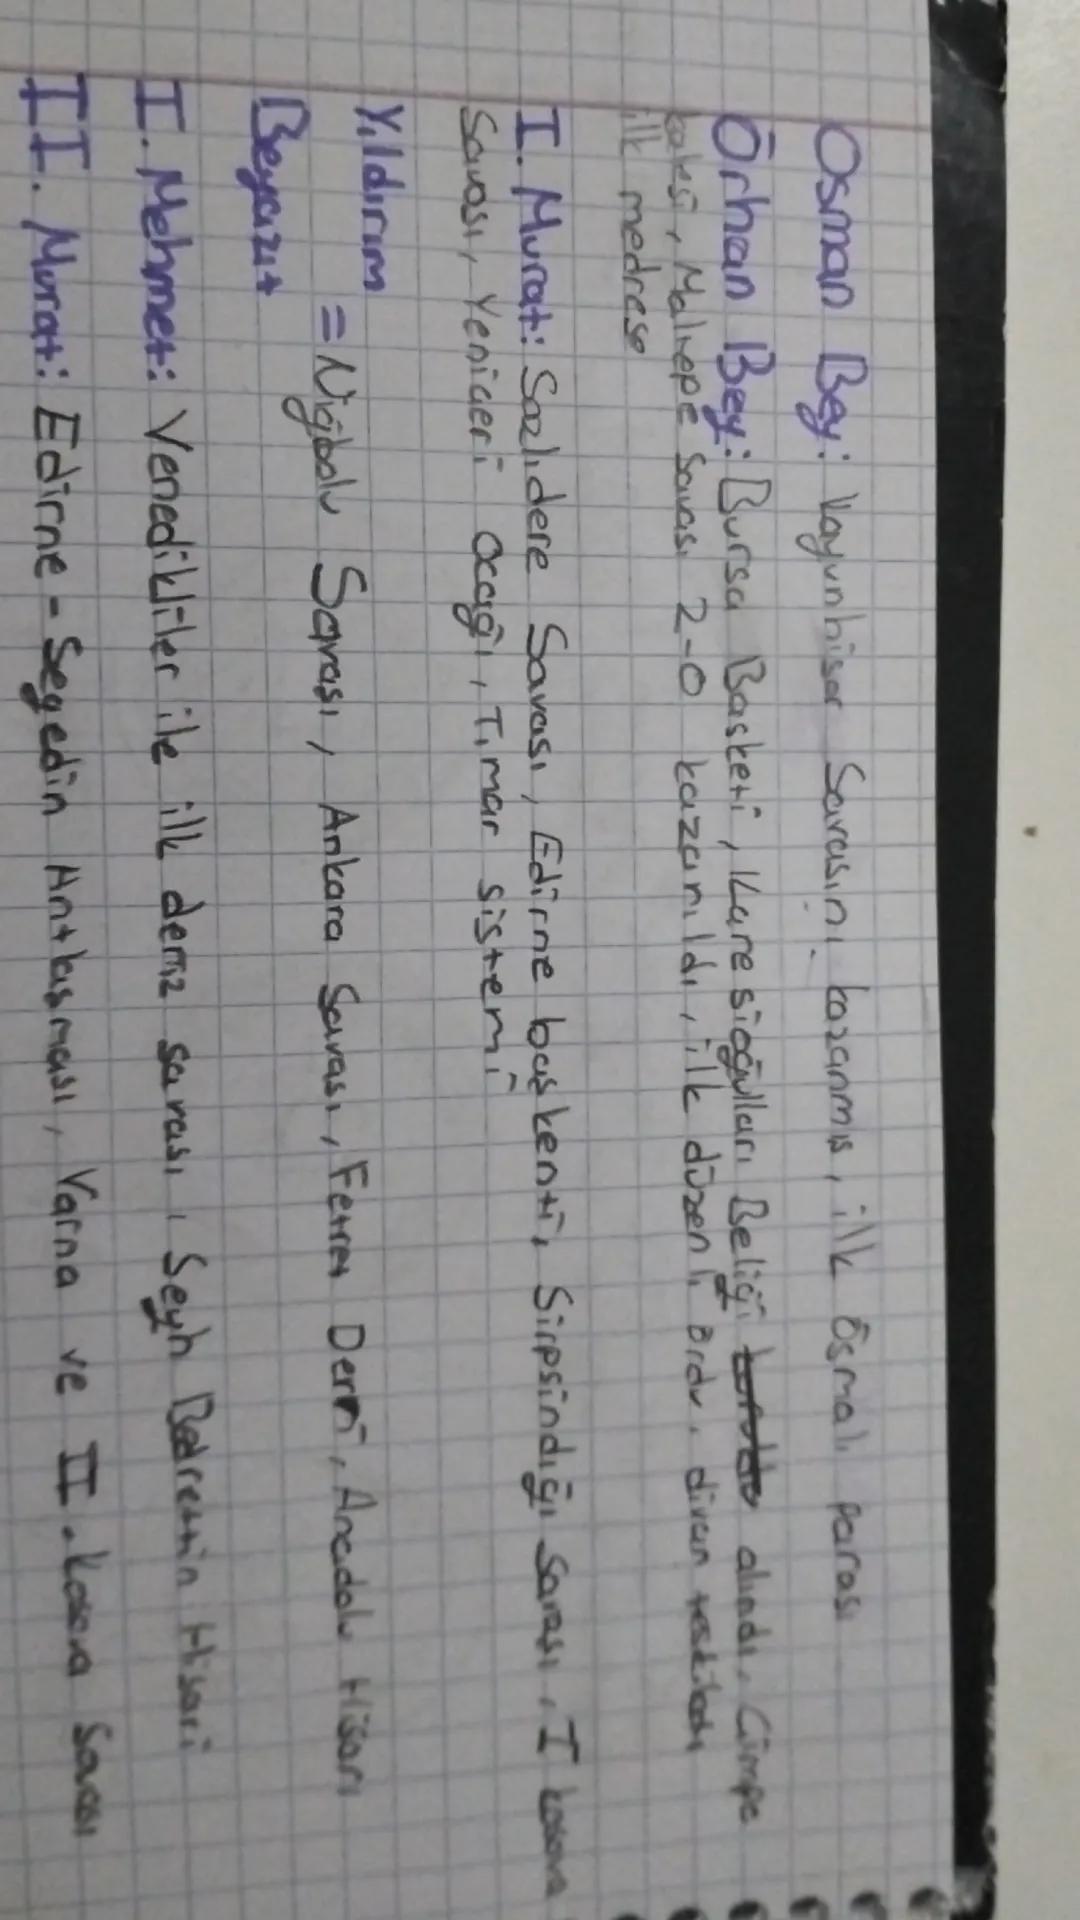 Osman Bey: Koyunhisar Savasını kazanmıs, ilk Osmalı parası
Orhan Bey: Bursa Baskenti, Karesioğulları Beliği alındı. Cimpe
kalesi, Maltepe Savası 2-0 kazanıldı, ilk düzenli ordu. divan teskilatı
ilk medrese
I. Murat: Sazlıdere Savası, Edirne baskenti, Sirpsindiği Savası, I kosova
Savası, Yeniceri ocağı, Tımar sistemi
Yıldırım
= Niğbolu Savası, Ankara Savası, Fetret Devri, Anadolu Hisarı
Beyazıt
I. Mehmet: Venedikliler ile ilk deniz savası, Seyh Bedrettin Hisari
II. Murat: Edirne - Segedin Antlasması, Varna ve II. kosova Savası